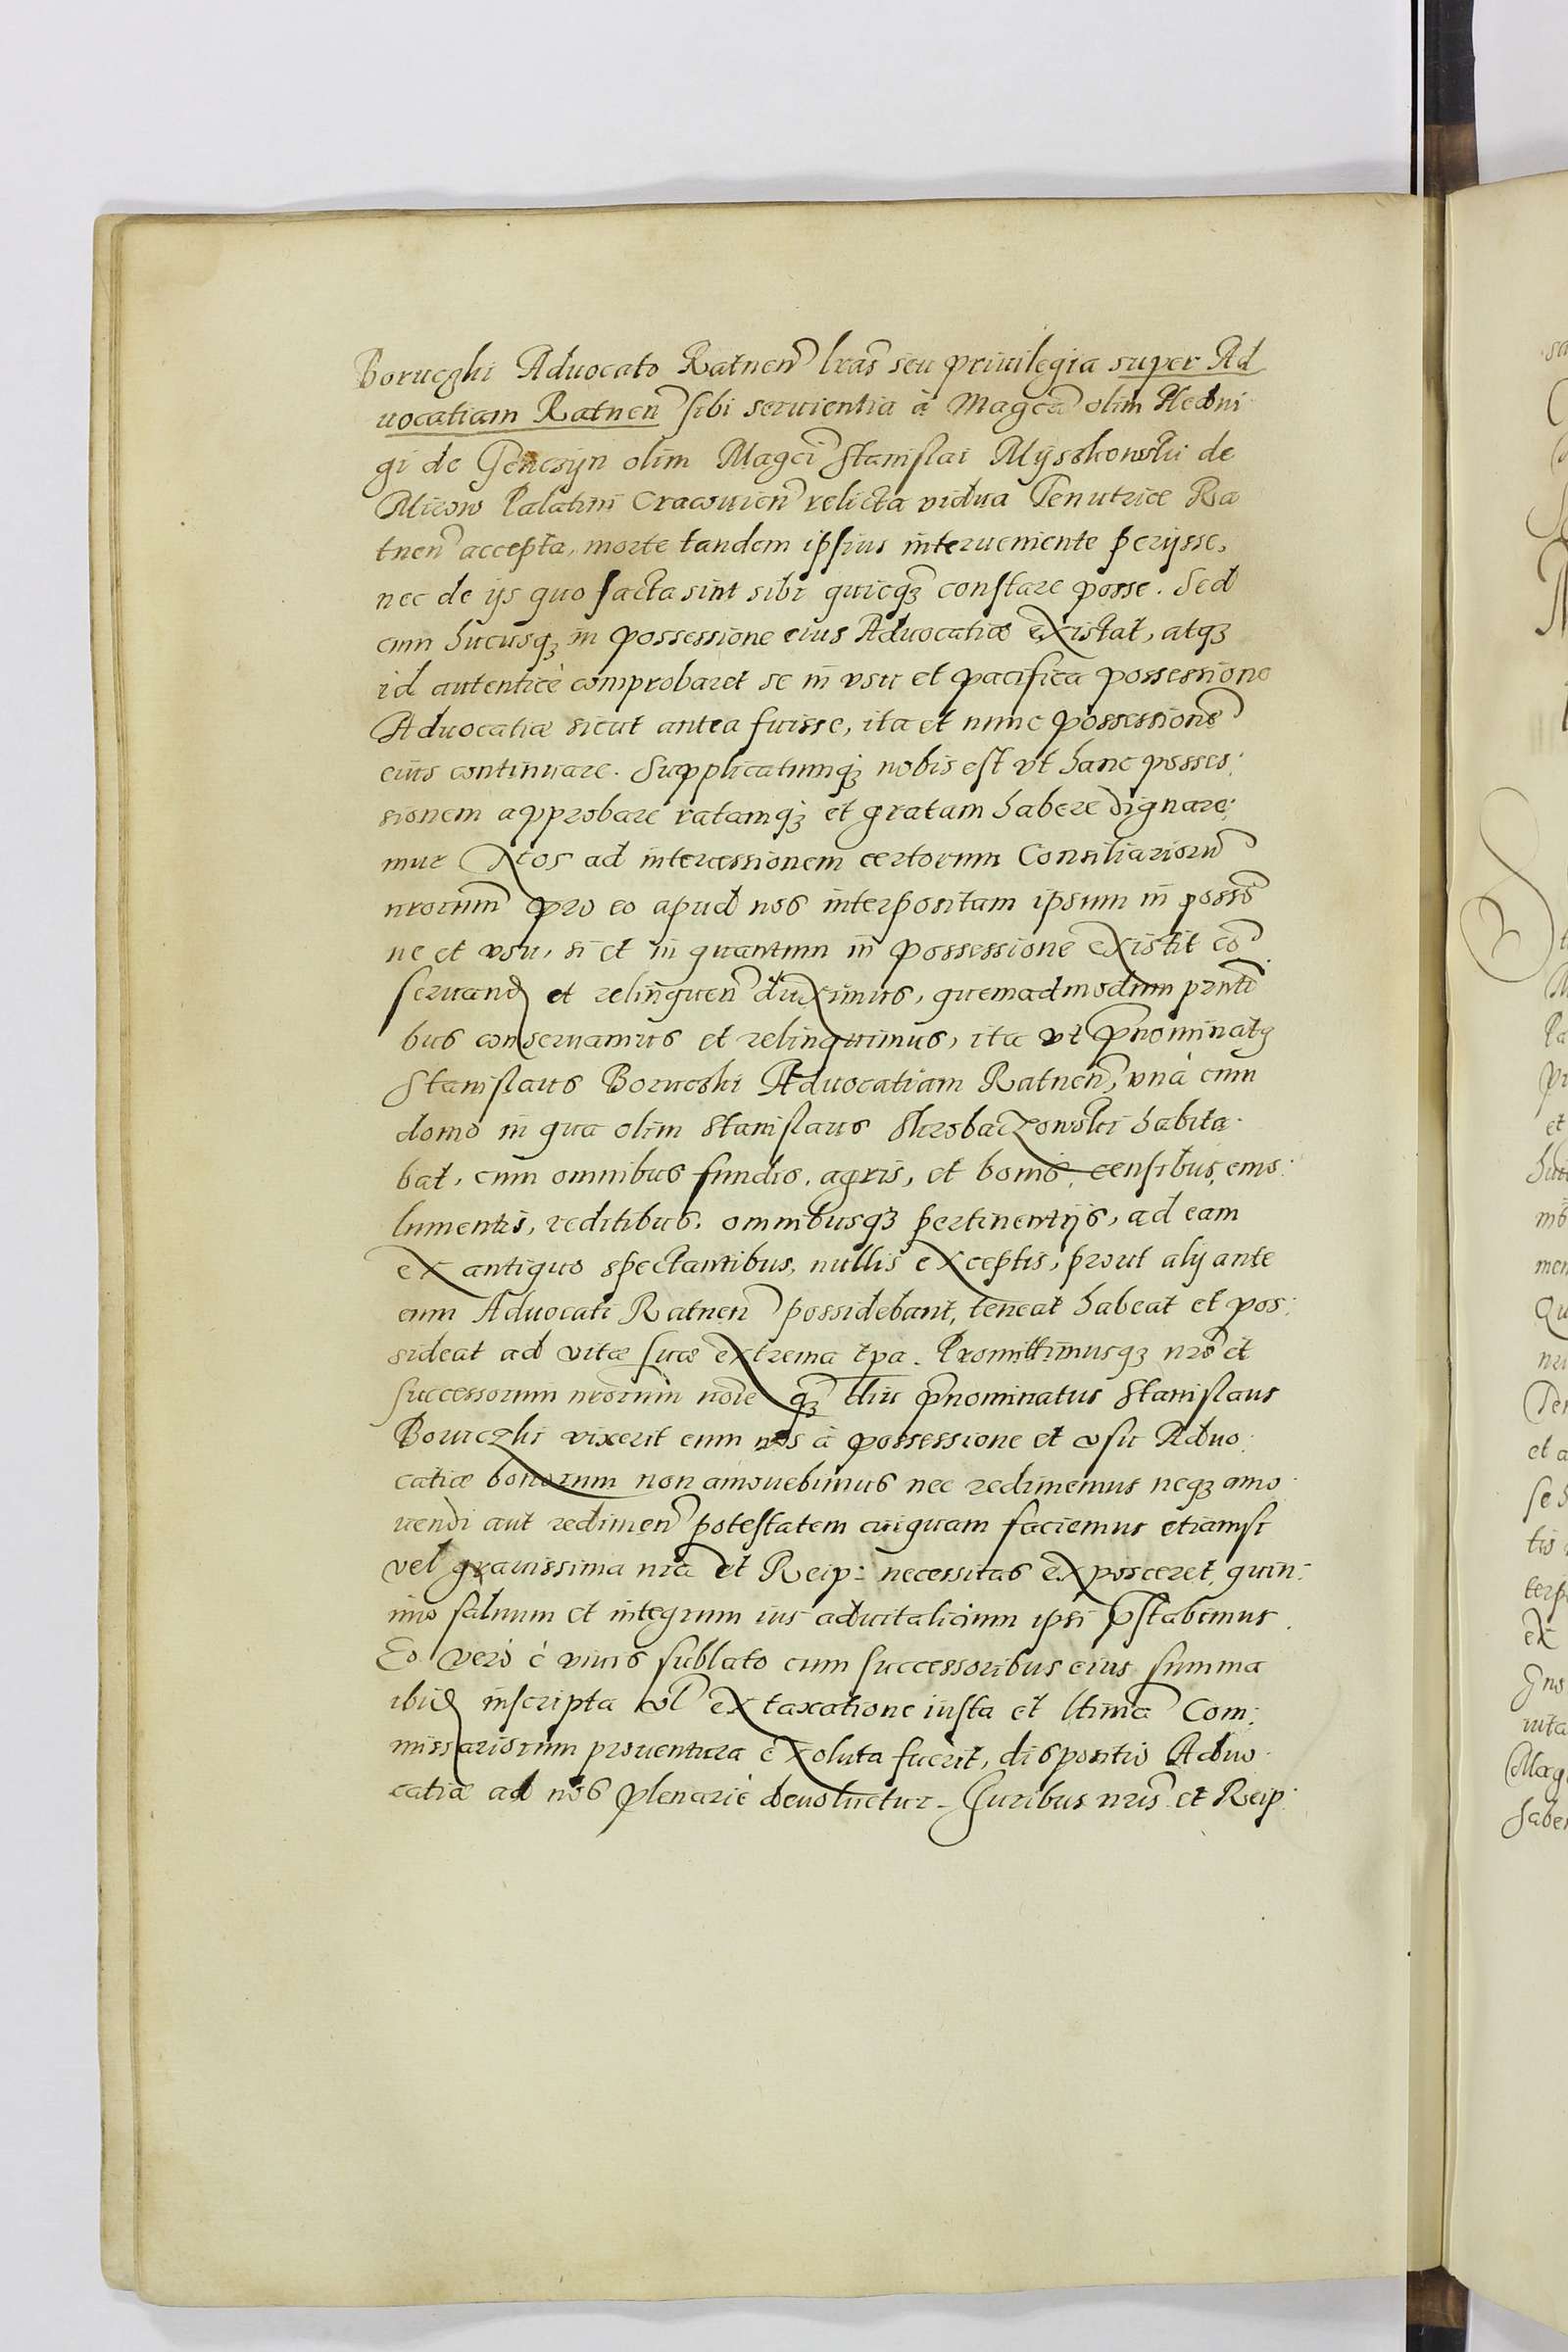 Boruczhi Advocato Ratnen lras seu privilegia super Ad
uocatiam Ratnen sibi seruientia à Magca olim Hedui
gi de Genczyn olim Magci Stanislai Myszkowski de
Mirow Palatini Cracouien relicta vidua Tenutrice Ra
tnen accepta, morte tandem ipsius interueniente perijsse,
nec de ijs quo facta sint sibi quicqz constare posse. Sed
cum hucusqz in possessione eius Aduocatiæ existat, atqz
id autenticè comprobaret se in vsu et pacifica possessione
Aduocatiæ sicut antea fuisse, ita et nunc possessione
eius continuare. Supplicatumqz nobis est vt hanc posses:
sionem approbare ratamqz et gratam habere dignare:
mur Nos ad intercessionem certorum Consiliarioru
nrorum pro eo apud nos interpositam ipsum in possio
ne et vsu, si et in quantum in possessione existit co
seruand et relinquen duximus, quemadmodum pnti
bus conseruamus et relinquimus, ita vt pnominatg
Stanislaus Boruczki Aduocatiam Ratnen, vnà cum
domo in qua olim Stanislaus Skrobaczowski habita
bat, cum omnibus fundis, agris, et bonis, censibus, emo:
lumentis, reditibus, omnibusqz pertinentijs, ad eam
ex antiquo spectantibus, nullis exceptis, prout alij ante
eum Aduocati Ratnen possidebant, teneat habeat et pos:
sideat ad vitæ suæ extrema tpa. Promittimusqz nro et
successorum nrorum noie qz diu pnominatus Stanislaus
Boruczhi vixerit eum nos à possessione et vsu Aduo:
catiæ bonorum non amouebimus nec redimemus neqz amo
uendi aut redimen potestatem cuiquam faciemus etiamsi
vel grauissima nra et Reip: necessitas exposceret, quin:
imo saluum et integrum ius aduitalicium ipsi pstabimus.
Eo verò è viuis sublato cum successoribus eius summa
ibid inscripta vl ex taxatione iusta et ltima Com:
missariorum prouentura exoluta fuerit, dispositio Aduo
catiæ ad nos plenariè deuoluetur. Juribus nris et Reip: